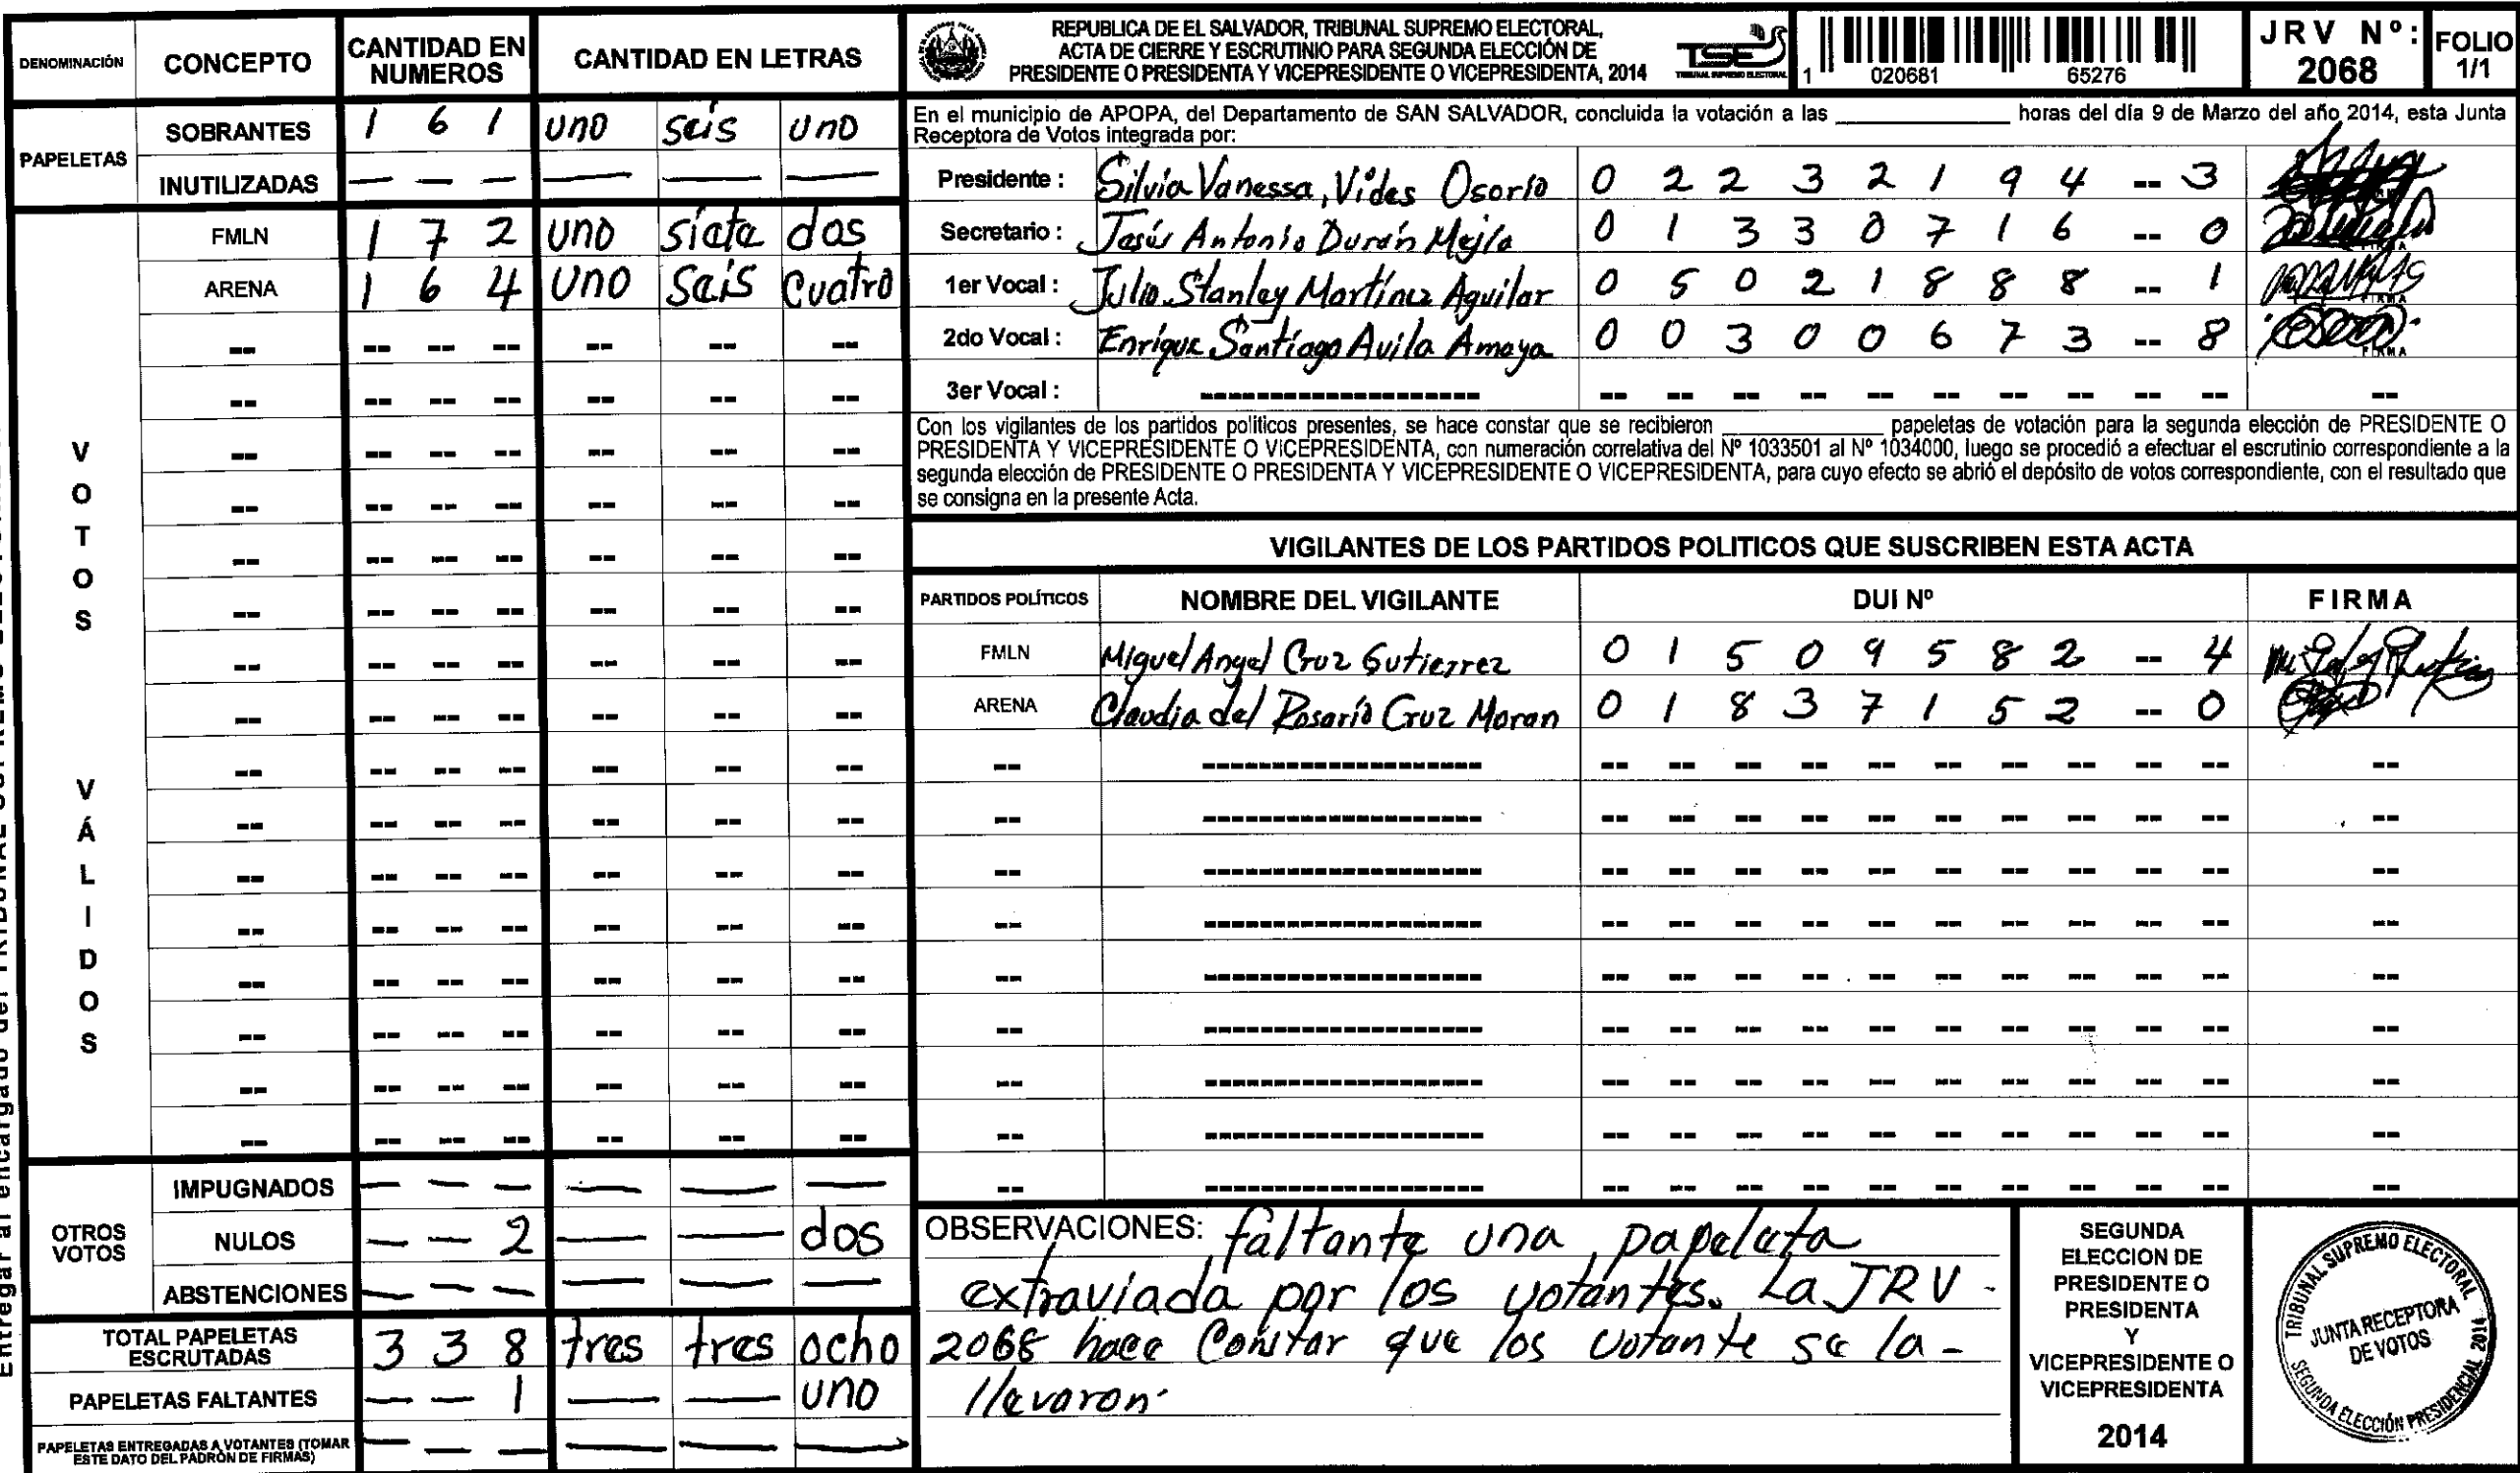 DENOMINACIÓN CONCEPTO CANTIDAD EN NUMEROS CANTIDAD EN LETRAS
PAPELETAS
SOBRANTES 1 6 1 uno seis uno
INUTILIZADAS — — — — — —
VOTOS VÁLIDOS
FMLN 1 7 2 uno siete dos
ARENA 1 6 4 uno seis cuatro
OTROS VOTOS
IMPUGNADOS — — — — — —
NULOS — — 2 — — dos
ABSTENCIONES — — — — — —
TOTAL PAPELETAS ESCRUTADAS 3 3 8 tres tres ocho
PAPELETAS FALTANTES — — 1 — — uno
PAPELETAS ENTREGADAS A VOTANTES (TOMAR ESTE DATO DEL PADRÓN DE FIRMAS) — — — — — —
REPUBLICA DE EL SALVADOR, TRIBUNAL SUPREMO ELECTORAL,
ACTA DE CIERRE Y ESCRUTINIO PARA SEGUNDA ELECCIÓN DE
PRESIDENTE O PRESIDENTA Y VICEPRESIDENTE O VICEPRESIDENTA, 2014
TSE
TRIBUNAL SUPREMO ELECTORAL
1 020681 65276
JRV Nº: 2068
FOLIO 1/1
En el municipio de APOPA, del Departamento de SAN SALVADOR, concluida la votación a las ____________ horas del día 9 de Marzo del año 2014, esta Junta
Receptora de Votos integrada por:
Presidente : Silvia Vanessa, Vides Osorio 0 2 2 3 2 1 9 4 -- 3
Secretario : Jesús Antonio Durán Mejía 0 1 3 3 0 7 1 6 -- 0
1er Vocal : Julio Stanley Martínez Aguilar 0 5 0 2 1 8 8 8 -- 1
2do Vocal : Enrique Santiago Avila Amaya 0 0 3 0 0 6 7 3 -- 8
3er Vocal :
Con los vigilantes de los partidos políticos presentes, se hace constar que se recibieron ____________ papeletas de votación para la segunda elección de PRESIDENTE O
PRESIDENTA Y VICEPRESIDENTE O VICEPRESIDENTA, con numeración correlativa del Nº 1033501 al Nº 1034000, luego se procedió a efectuar el escrutinio correspondiente a la
segunda elección de PRESIDENTE O PRESIDENTA Y VICEPRESIDENTE O VICEPRESIDENTA, para cuyo efecto se abrió el depósito de votos correspondiente, con el resultado que
se consigna en la presente Acta.
VIGILANTES DE LOS PARTIDOS POLITICOS QUE SUSCRIBEN ESTA ACTA
PARTIDOS POLÍTICOS NOMBRE DEL VIGILANTE DUI Nº FIRMA
FMLN Miguel Angel Cruz Gutierrez 0 1 5 0 9 5 8 2 -- 4
ARENA Claudia del Rosario Cruz Moran 0 1 8 3 7 1 5 2 -- 0
OBSERVACIONES: faltante una papeleta
extraviada por los votantes. La JRV -
2068 hace Constar que los votante se la -
llevaron.
SEGUNDA
ELECCION DE
PRESIDENTE O
PRESIDENTA
Y
VICEPRESIDENTE O
VICEPRESIDENTA
2014
TRIBUNAL SUPREMO ELECTORAL
JUNTA RECEPTORA
DE VOTOS
SEGUNDA ELECCIÓN PRESIDENCIAL 2014
Entregar al encargado del TRIBUNAL